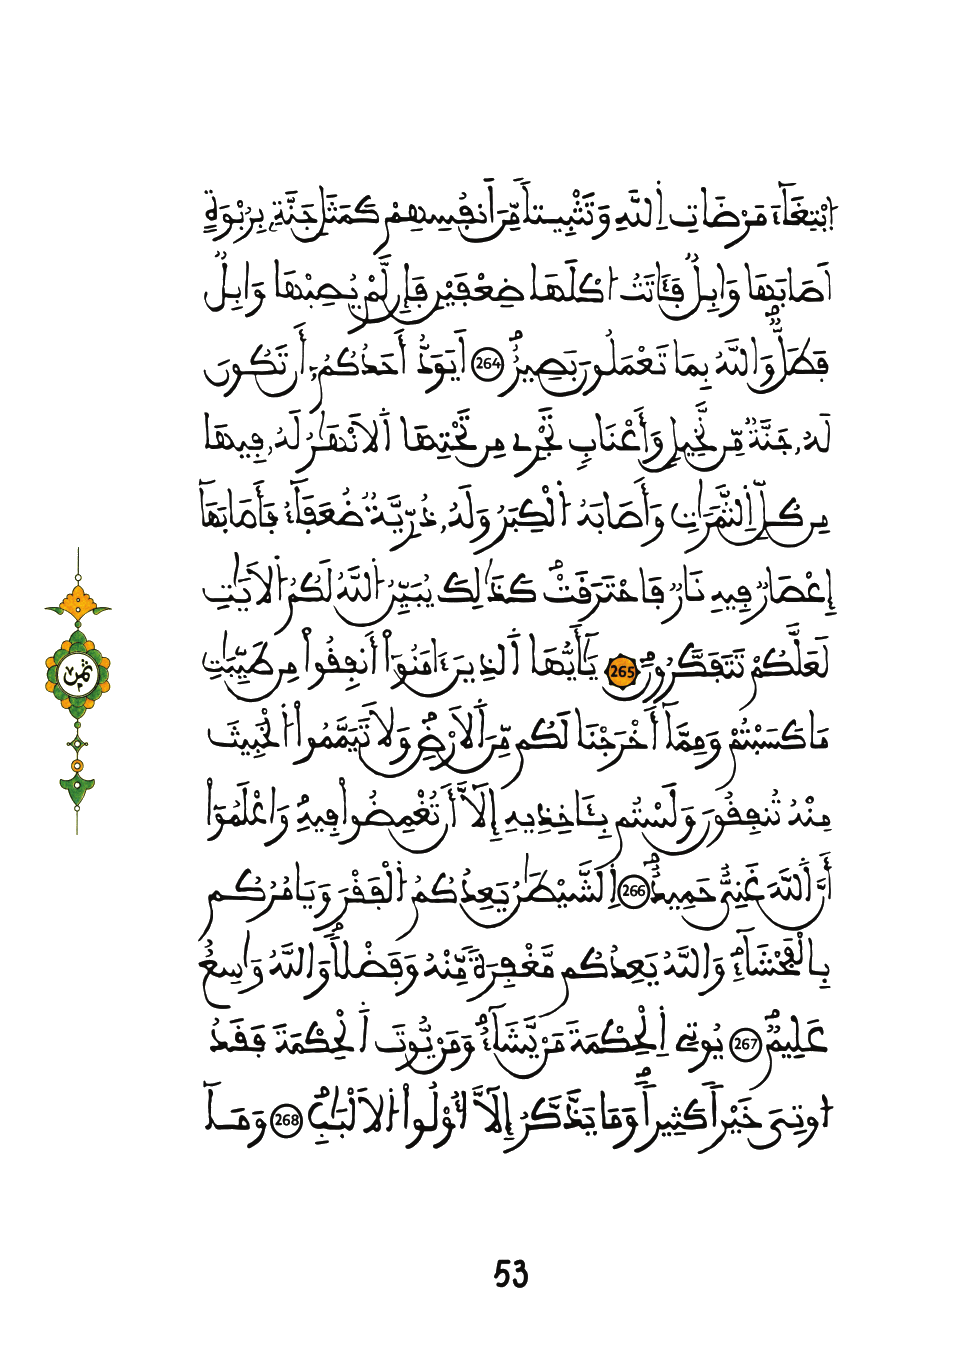 اِبْتِغَآءَ مَرْضَاتِ اِ۬للَّهِ وَتَثْبِيتاٗ مِّنَ اَنفُسِهِمْ كَمَثَلِ جَنَّةِۢ بِرُبْوَةٍ
اَصَابَهَا وَابِلٞ فَـَٔاتَتُ ا۟كْلَهَا ضِعْفَيْنِ فَإِن لَّمْ يُصِبْهَا وَابِلٞ
فَطَلّٞ وَاللَّهُ بِمَا تَعْمَلُونَ بَصِيرٌۖ 264 اَيَوَدُّ أَحَدُكُمُۥٓ أَن تَكُونَ
لَهُۥ جَنَّةٞ مِّن نَّخِيلٖ وَأَعْنَابٖ تَجْرِے مِن تَحْتِهَا اَ۬لَانْهَٰرُ لَهُۥ فِيهَا
مِن كُلِّ اِ۬لثَّمَرَٰتِ وَأَصَابَهُ اُ۬لْكِبَرُ وَلَهُۥ ذُرِّيَّةٞ ضُعَفَآءُ فَأَصَابَهَآ
إِعْصَارٞ فِيهِ نَارٞ فَاحْتَرَقَتْۖ كَذَٰلِكَ يُبَيِّنُ اُ۬للَّهُ لَكُمُ اُ۬لَايَٰتِ
لَعَلَّكُمْ تَتَفَكَّرُونَۖ 265 يَٰٓأَيُّهَا اَ۬لذِينَ ءَامَنُوٓاْ أَنفِقُواْ مِن طَيِّبَٰتِ
مَا كَسَبْتُمْ وَمِمَّآ أَخْرَجْنَا لَكُم مِّنَ اَ۬لَارْضِۖ وَلَا تَيَمَّمُواْ اُ۬لْخَبِيثَ
مِنْهُ تُنفِقُونَ وَلَسْتُم بِـَٔاخِذِيهِ إِلَّآ أَن تُغْمِضُواْ فِيهِۖ وَاعْلَمُوٓاْ
أَنَّ اَ۬للَّهَ غَنِيٌّ حَمِيدٌۖ 266 اِ۬لشَّيْطَٰنُ يَعِدُكُمُ اُ۬لْفَقْرَ وَيَامُرُكُم
بِالْفَحْشَآءِۖ وَاللَّهُ يَعِدُكُم مَّغْفِرَةٗ مِّنْهُ وَفَضْلاٗۖ وَاللَّهُ وَٰسِعٌ
عَلِيمٞۖ 267 يُوتِے اِ۬لْحِكْمَةَ مَنْ يَّشَآءُۖ وَمَنْ يُّوتَ اَ۬لْحِكْمَةَ فَقَدُ
ا۟وتِيَ خَيْراٗ كَثِيراٗۖ وَمَا يَذَّكَّرُ إِلَّآ أُوْلُواْ اُ۬لَالْبَٰبِۖ 268 وَمَآ
ثمن
53